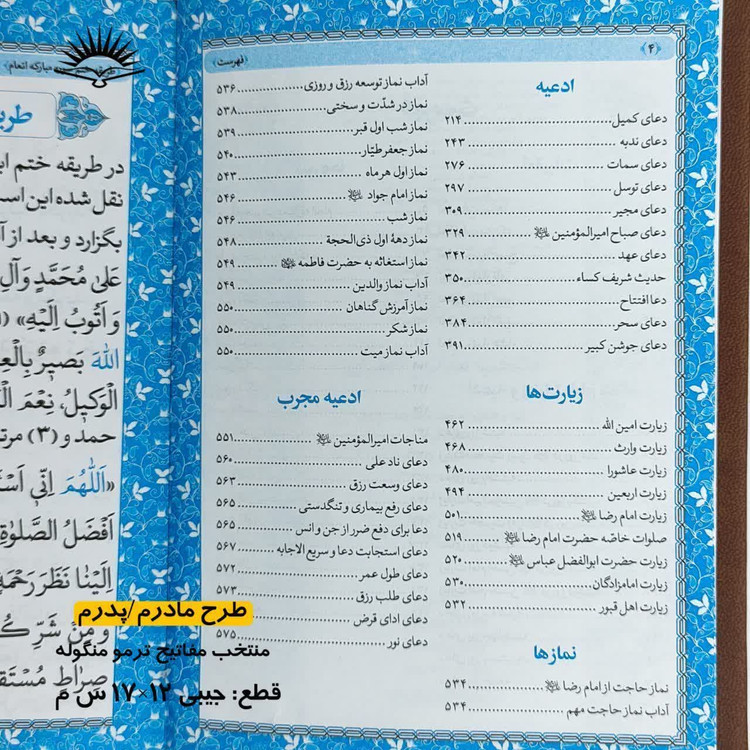 ﴿۴﴾
﴿فهرست﴾
ادعیه
دعای کمیل ........ ۲۱۴
دعای ندبه ........ ۲۴۳
دعای سمات ........ ۲۷۶
دعای توسل ........ ۲۹۷
دعای مجیر ........ ۳۰۹
دعای صباح امیرالمؤمنین ........ ۳۲۹
دعای عهد ........ ۳۴۲
حدیث شریف کساء ........ ۳۵۰
دعا افتتاح ........ ۳۶۴
دعای سحر ........ ۳۸۴
دعای جوشن کبیر ........ ۳۹۱
زیارت‌ها
زیارت امین الله ........ ۴۶۲
زیارت وارث ........ ۴۶۸
زیارت عاشورا ........ ۴۸۰
زیارت اربعین ........ ۴۹۴
زیارت امام رضا ........ ۵۰۱
صلوات خاصه حضرت امام رضا ........ ۵۱۹
زیارت حضرت ابوالفضل عباس ........ ۵۲۰
زیارت امامزادگان ........ ۵۳۰
زیارت اهل قبور ........ ۵۳۲
نمازها
نماز حاجت از امام رضا ........ ۵۳۴
آداب نماز حاجت مهم ........ ۵۳۴
آداب نماز توسعه رزق و روزی ........ ۵۳۶
نماز در شدّت و سختی ........ ۵۳۸
نماز شب اول قبر ........ ۵۳۹
نماز جعفر طیّار ........ ۵۴۰
نماز اول هر ماه ........ ۵۴۳
نماز امام جواد ........ ۵۴۶
نماز شب ........ ۵۴۶
نماز دهۀ اول ذی‌الحجة ........ ۵۴۸
نماز استغاثه به حضرت فاطمه ........ ۵۴۹
آداب نماز والدین ........ ۵۴۹
نماز آمرزش گناهان ........ ۵۵۰
نماز شکر ........ ۵۵۰
آداب نماز میت ........ ۵۵۰
ادعیه مجرب
مناجات امیرالمؤمنین ........ ۵۵۱
دعای ناد علی ........ ۵۶۰
دعای وسعت رزق ........ ۵۶۳
دعای رفع بیماری و تنگدستی ........ ۵۶۵
دعا برای دفع ضرر از جن و انس ........ ۵۶۵
دعای استجابت دعا و سریع الاجابه ........ ۵۶۷
دعای طول عمر ........ ۵۷۲
دعای طلب رزق ........ ۵۷۳
دعای ادای قرض
دعای نور ........ ۵۷۵
مبارکه انعام﴾
در طریقه ختم
نقل شده این است
بگزارد و بعد از
عَلیٰ مُحَمَّدٍ وَآلِ
وَ اَتُوبُ اِلَیْهِ»
اللهَ بَصیرٌ بِالْ
الْوَکیلُ، نِعْمَ
حمد و (۳)
«اَللّٰهُمَّ اِنّی
اَفْضَلُ الصَّلوٰةِ
اِلَیْنا نَظَرَ رَحْمَةٍ
وَ مِنْ شَرِّ
صِراطٍ
طرح مادرم/پدرم
منتخب مفاتیح ترمو منگوله
قطع: جیبی ۱۲×۱۷ س م